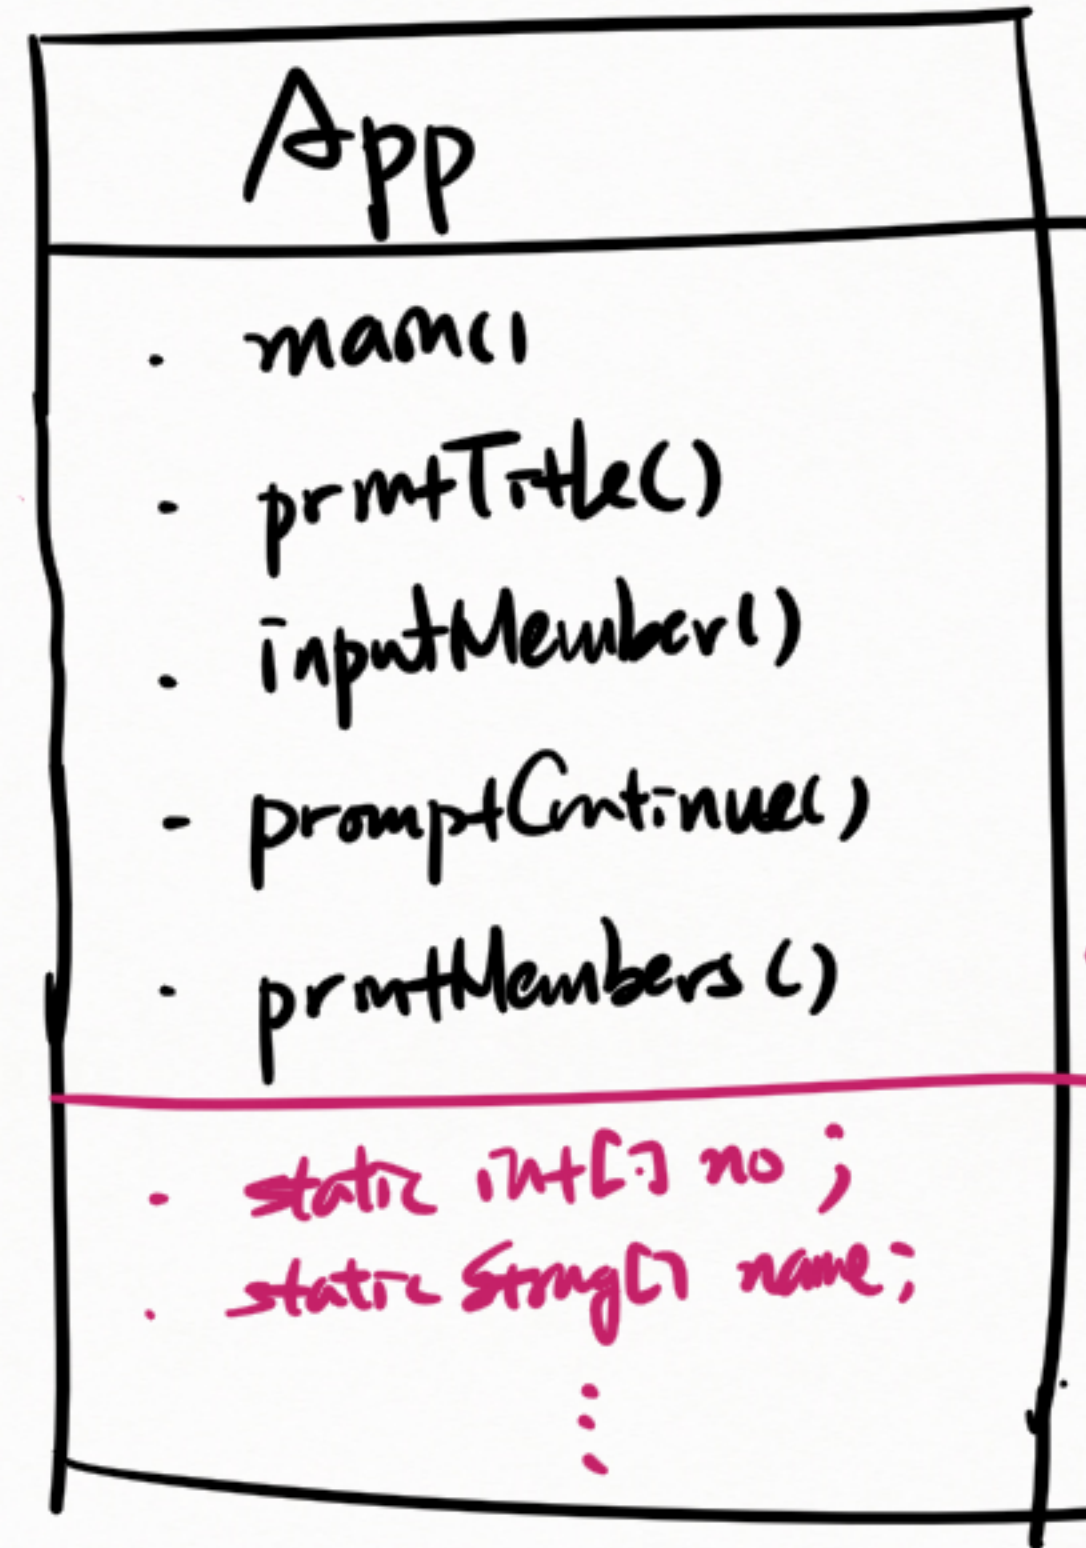 App
. main()
. printTitle()
. inputMember()
- promptContinue()
. printMembers()
. static int[] no ;
. static String[] name;
⋮